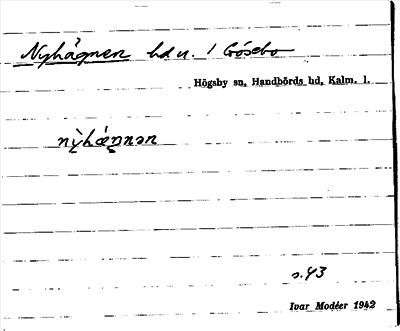 Nyhågnen hd u. / Gösebo
Högsby sn, Handbörds hd, Kalm. l.
nỳhágnən
s. 43
Ivar Modéer 1942